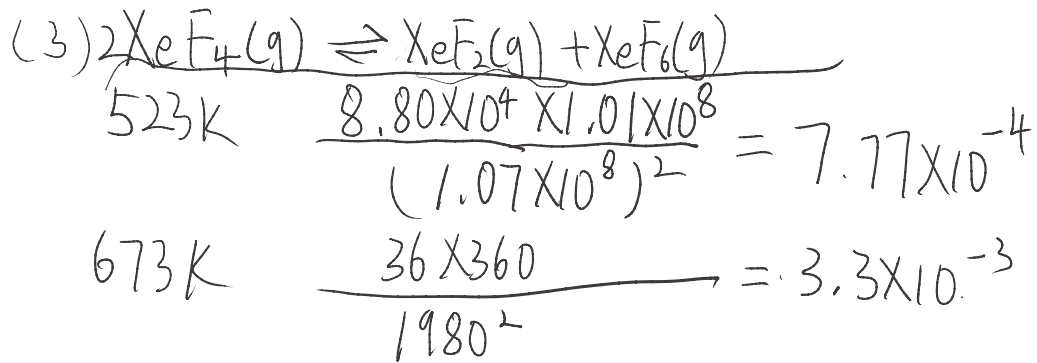 (3) 2XeF₄(g) ⇌ XeF₂(g) + XeF₆(g)
523K (8.80×10⁴ × 1.01×10⁸)/(1.07×10⁸)² = 7.77×10⁻⁴
673K (36×360)/1980² = 3.3×10⁻³